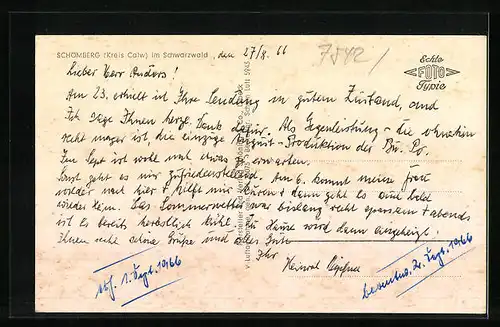 SCHÖMBERG (Kreis Calw) im Schwarzwald, den 27/8. 66
7542/
Echte
FOTO
Typie
Lieber Herr Anders!
Am 23. erhielt ich Ihre Sendung in gutem Zustand, und
ich sage Ihnen herzl. Dank dafür. Als Gegenleistung - die ohnehin
recht mager ist, die einzige August-Produktion der Bu. Po.
Im Sept. ist wohl mal etwas zu erwarten.
Sonst geht es mir zufriedenstellend. Am 6. kommt meine Frau
wieder mal hier + hilft mir kuren + dann geht es bald
wieder heim. Das Sommerwetter war bislang recht sparsam + abends
ist es bereits herbstlich kühl. Zu Hause wird dann ausgeheizt!
Ihnen recht schöne Grüße und alles Gute
Ihr
Heinrich
abg. 1. Sept. 1966
beantw. 2. Sept. 1966